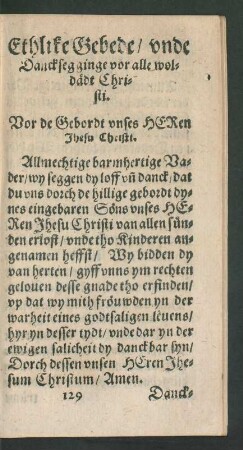 Ethlike Gebede/ vnde
Dancksegginge vor alle wol-
dädt Chri-
sti.
Vor de Gebordt vnses HERen
Jhesu Christi.
Allmechtige barmhertige Va-
der/ wy seggen dy loff vñ danck/ dat
du vns dorch de hillige gebordt dy-
nes eingebaren Söns vnses HE-
Ren Jhesu Christi van allen sün-
den erlost/ vnde tho Kinderen an-
genamen heffst/ Wy bidden dy
van herten/ gyff vnns ym rechten
gelouen desse gnade tho erfinden/
vp dat wy mith fröuwden yn der
warheit eines godtsaligen leuens/
hyr yn desser tydt/ vnde dar yn der
ewigen salicheit dy danckbar syn/
Dorch dessen vnsen HEren Jhe-
sum Christum/ Amen.
129 Danck-